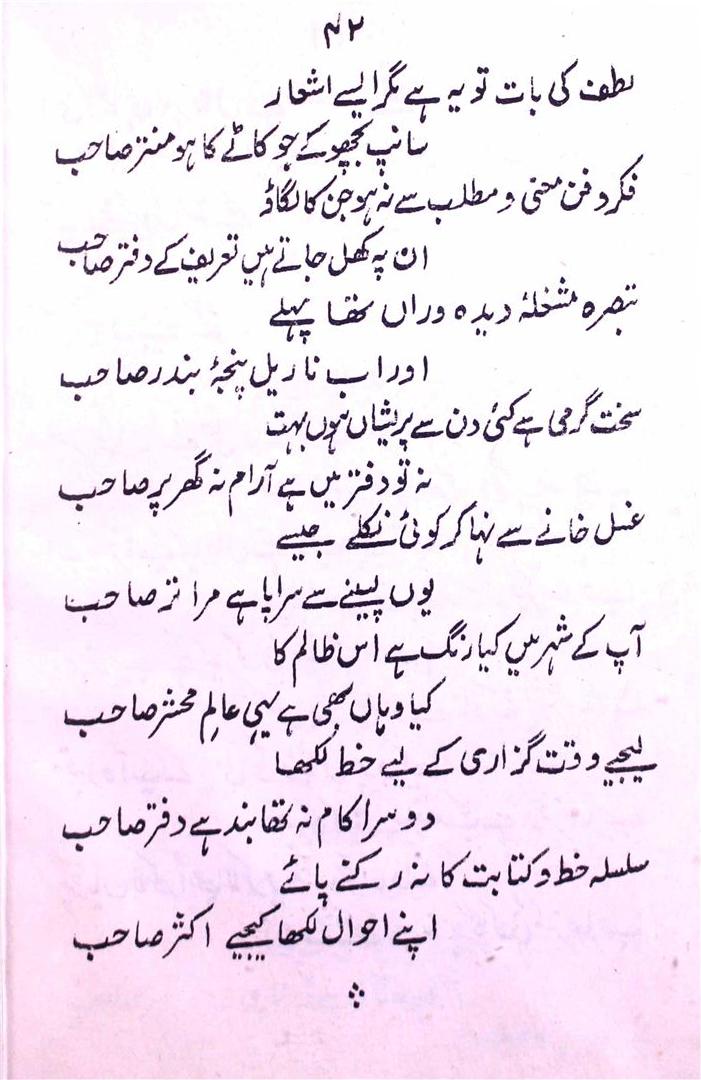 ۴۲
لطف کی بات تو یہ ہے مگر ایسے اشعار
سانپ بچھو کے جو کاٹے کا ہو منتر صاحب
فکر و فن معنی و مطلب سے نہ ہو جن کا لگاؤ
ان پہ کھل جاتے ہیں تعریف کے دفتر صاحب
تبصرہ مشغلۂ دیدہ وراں تھا پہلے
اور اب ناریل پنجۂ بندر صاحب
سخت گرمی ہے کئی دن سے پریشاں ہوں بہت
نہ تو دفتر میں ہے آرام نہ گھر پر صاحب
غسل خانے سے نہا کر کوئی نکلے جیسے
یوں پسینے سے سراپا ہے مرا تر صاحب
آپ کے شہر میں کیا رنگ ہے اس ظالم کا
کیا وہاں بھی ہے یہی عالمِ محشر صاحب
لیجیے وقت گزاری کے لیے خط لکھا
دوسرا کام نہ تھا بند ہے دفتر صاحب
سلسلہ خط و کتابت کا نہ رکنے پائے
اپنے احوال لکھا کیجیے اکثر صاحب